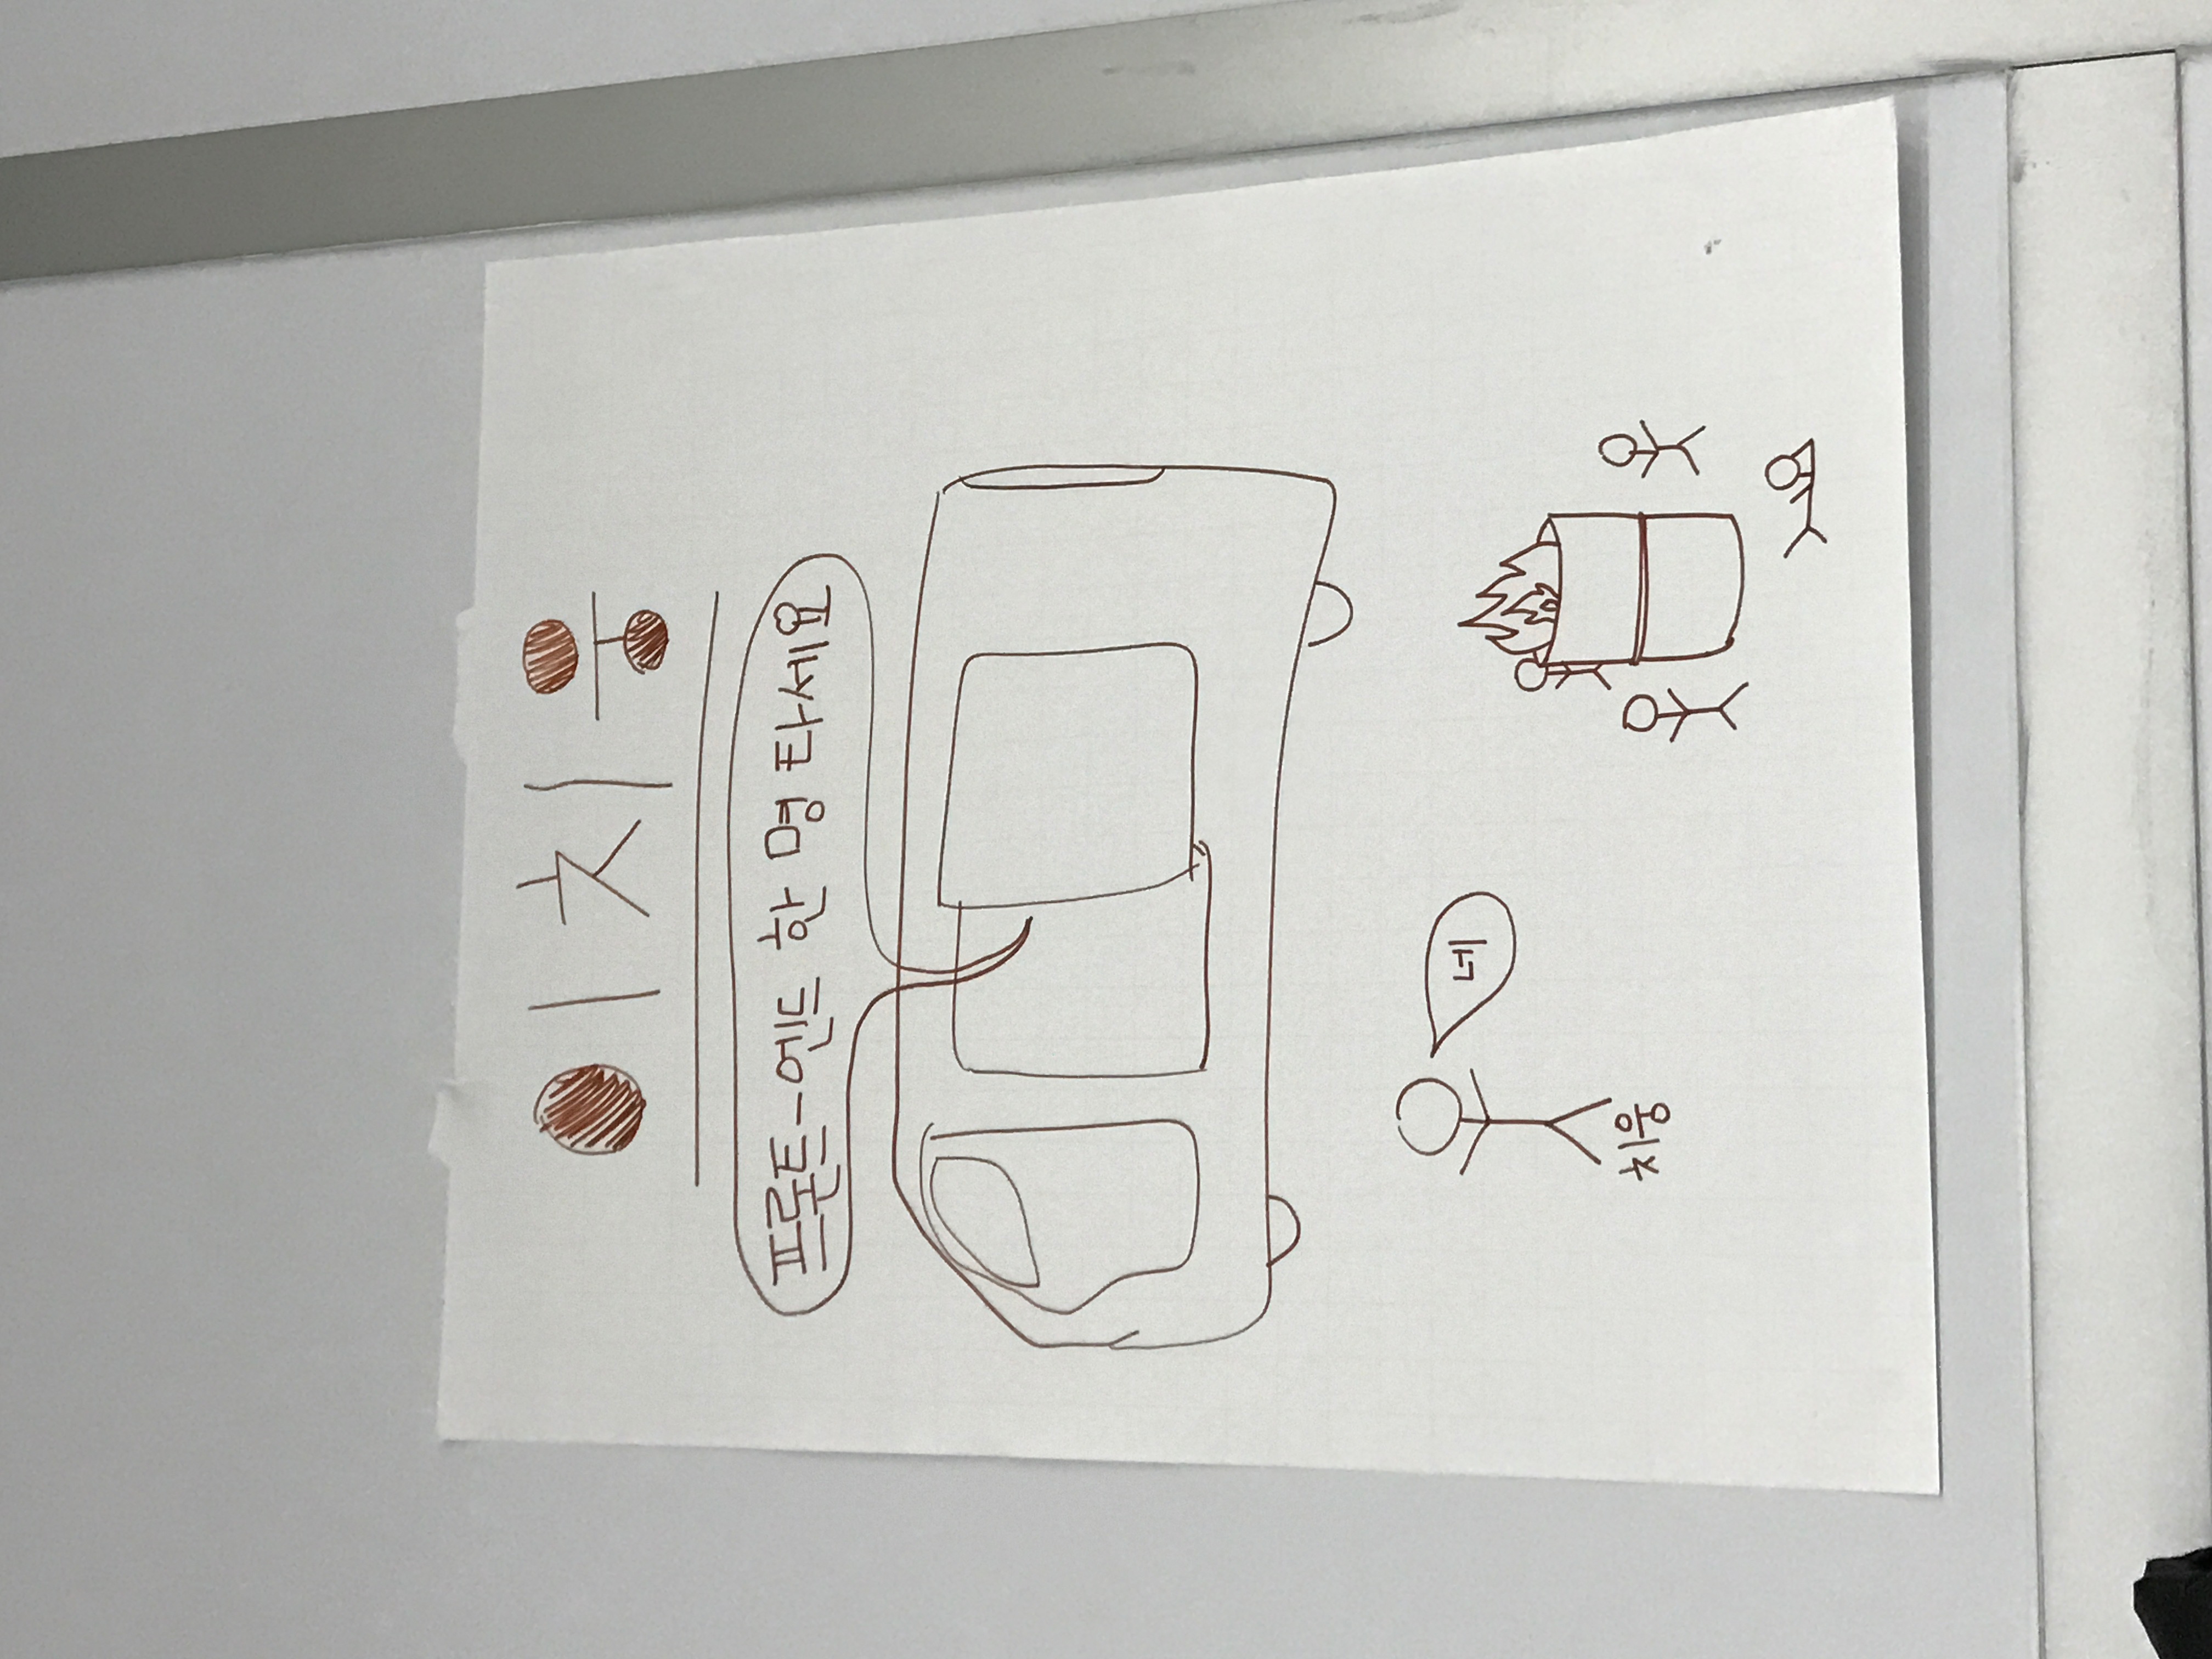 이치웅
프론트-엔드 한 명 타세요
네
치웅